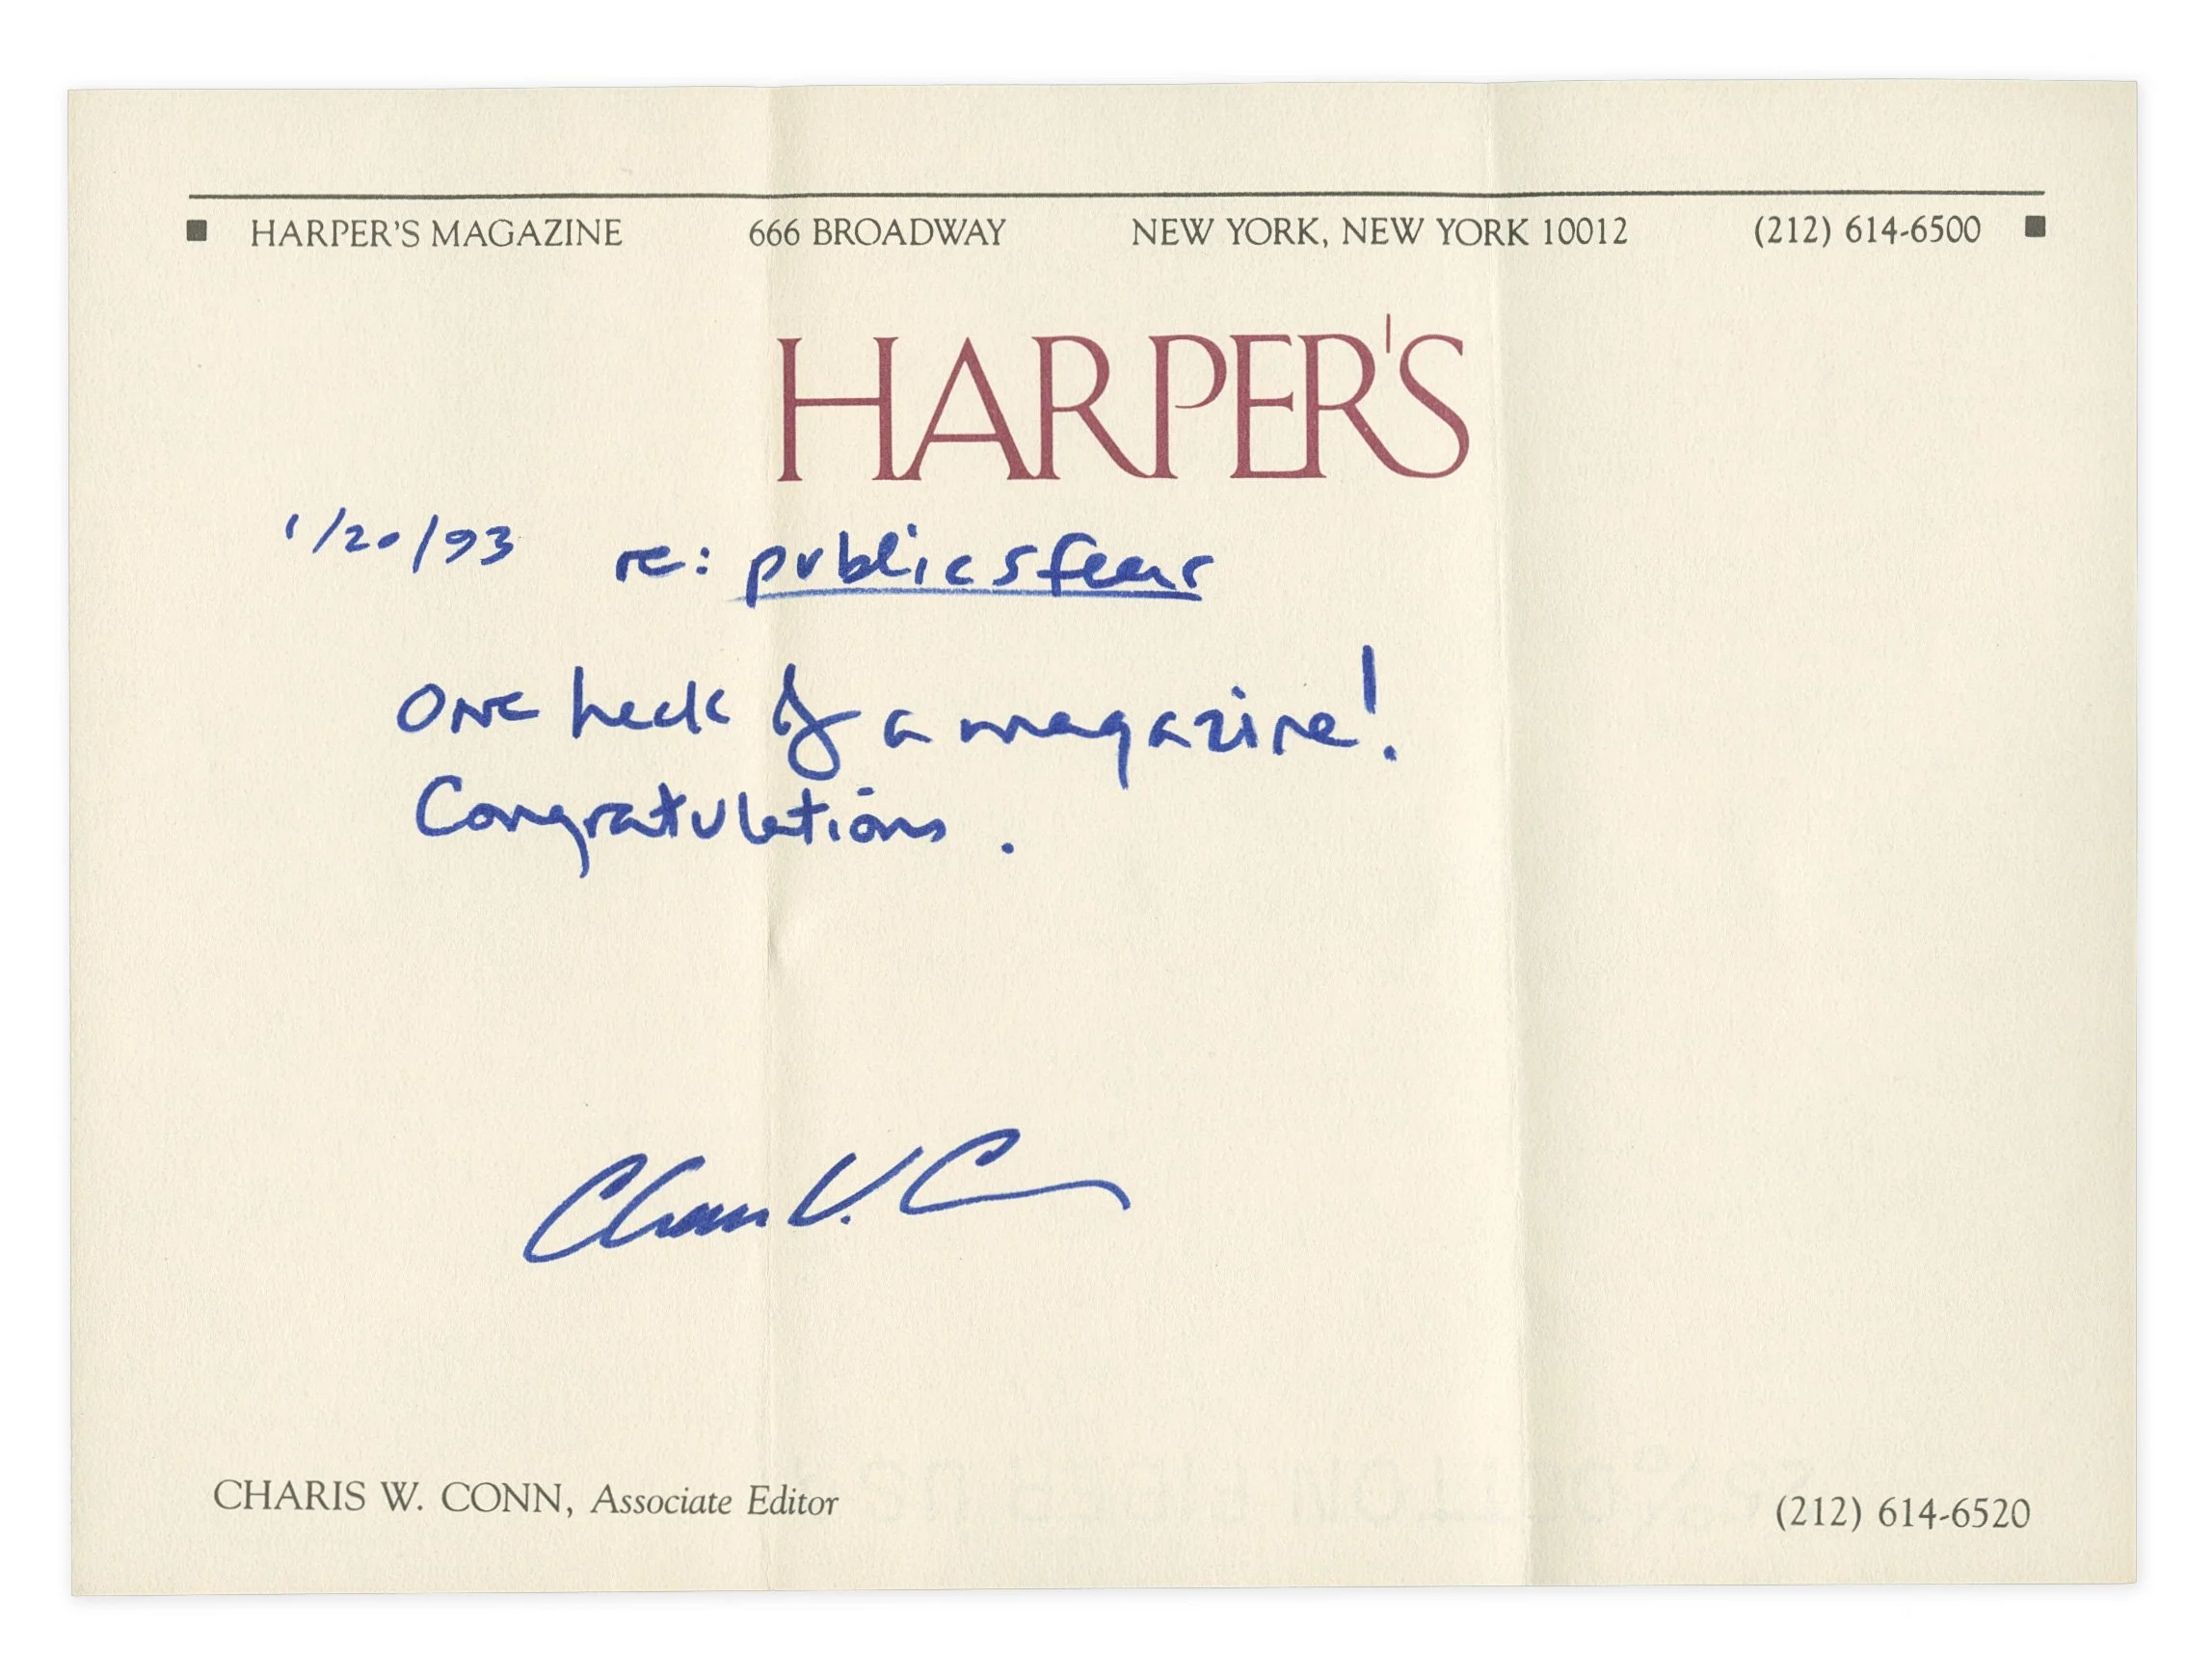 ■ HARPER'S MAGAZINE 666 BROADWAY NEW YORK, NEW YORK 10012 (212) 614-6500 ■
HARPER'S
1/20/93 re: publicsfear
One heck of a magazine!
Congratulations.
CHARIS W. CONN, Associate Editor (212) 614-6520